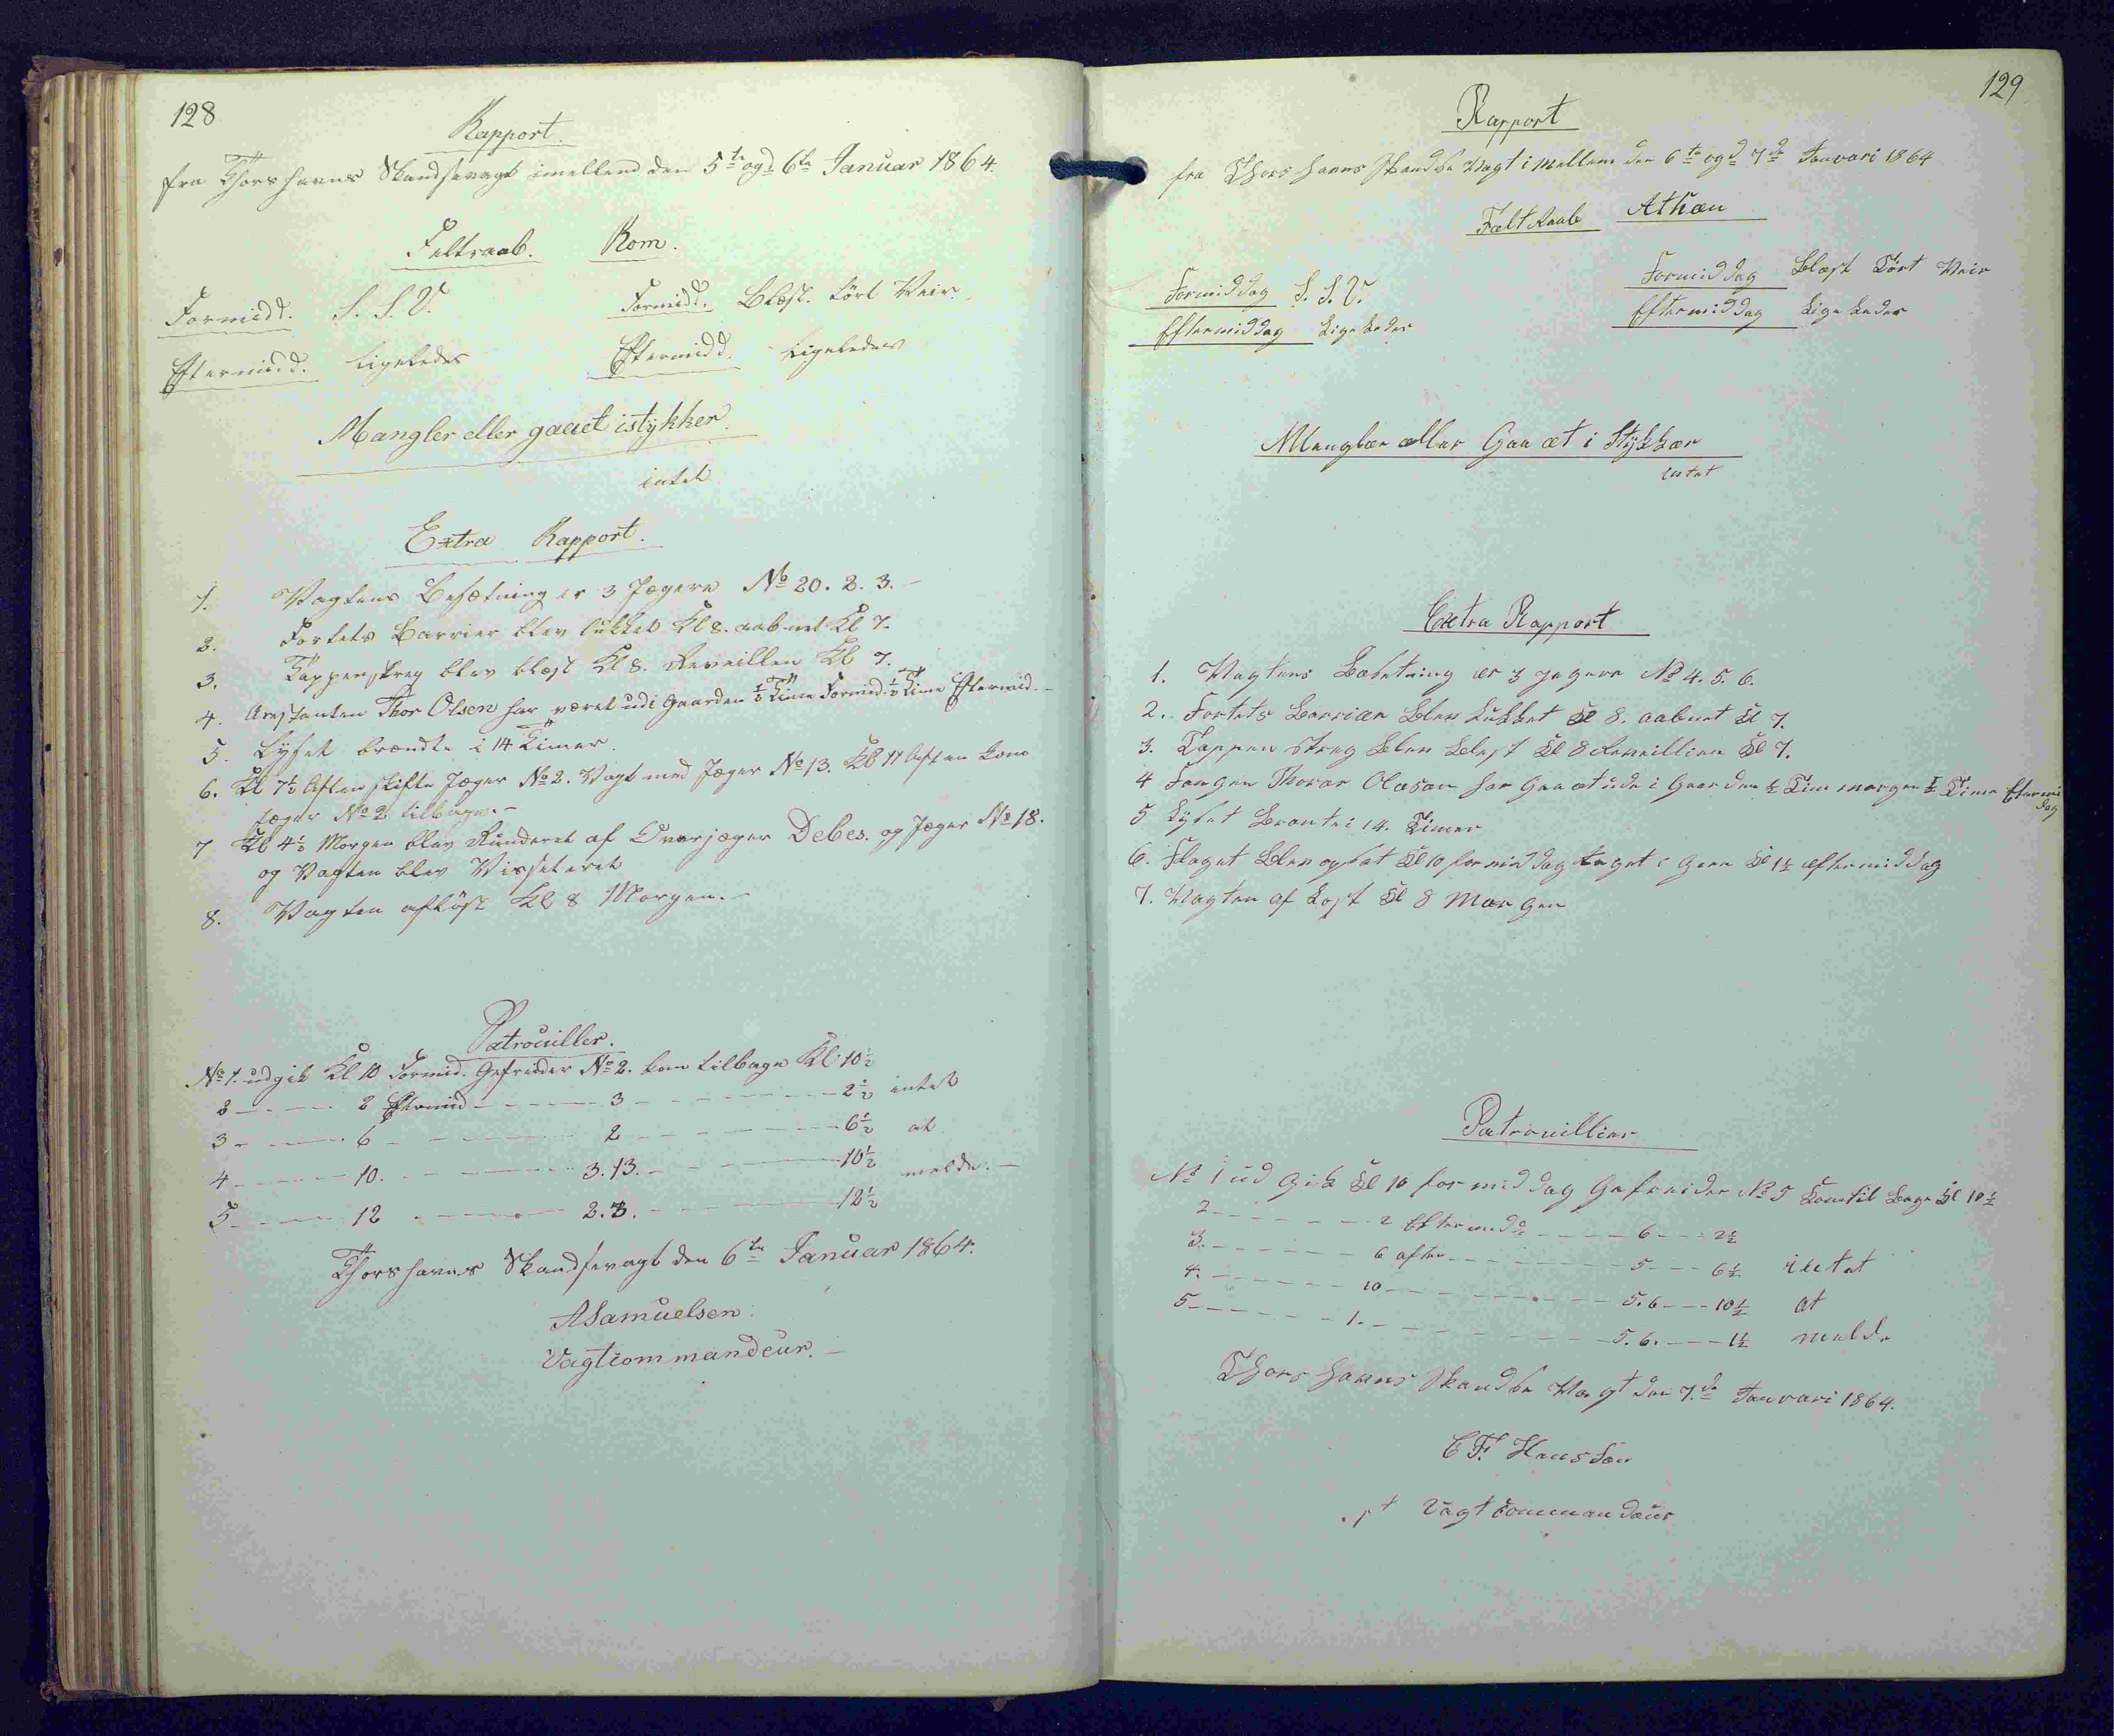 128
Rapport.
fra Thorshavns Skandsevagt imellem den 5te og 6te Januar 1864.
Feltraab. Rom.
Formidd. S. S. V. Formidd. Blæst. tört Veir.
Eftermidd. ligeledes Eftermidd. ligeledes
Mangler eller gaaet istykker.
intet
Extra Rapport.
1. Vagtens Besætning er 3 Jægere No 20. 2. 3. -
2. Fortets Barrier blev lukket Kl 8. aabnet Kl 7.
3. Tappenstreg blev blæst Kl 8. Reveillen Kl 7.
4. Arestanten Thor Olsen har været udi Gaarden ½ Time Formid. ½ Time Eftermid. -
5. Lyset brændte i 14 Timer.
6. Kl 7½ Aften skifte Jæger No 2. Vagt med Jæger No 13. Kl 11 Aften kom
Jæger No 2 tilbage. -
7 Kl 4½ Morgen blev Runderet af Overjæger Debes. og Jæger No 18.
og Vagten blev Visiteret
8. Vagten aflöst Kl 8 Morgen. -
Patrouiller.
No 1. udgik Kl 10 Formid. Gefreider No 2. kom tilbage Kl. 10½
2 - - - 2 Eftermid - - - 3 - - - 2½ intet
3 - - - 6 - - - 2 - - - 6½ at
4 - - - 10. - - - 3. 13. - - - 10½ melde. -
5 - - - 12 - - - 2. 3. - - - 12½
Thorshavns Skandsevagt den 6te Januar 1864.
A Samuelsen.
Vagtcommandeur. -
129
Rapport
fra Thors havns Skandse Vagt i mellem den 6te og 7de Januari 1864
Felt Raab Athæn
Formiddag S. S. V. Formiddag Blæst Tört Veir
Eftermiddag Lige Ledes Eftermiddag Lige Ledes
Manglær eller Gaa et i Stykker
intet
Extra Rapport
1. Vagtens Besetning er 3 jegere No 4. 5. 6.
2. Fortets Barriær Blev Lukket Kl 8. aabnet Kl 7.
3. Tappen streg Blev Blest Kl 8 Reveillien Kl 7.
4 Fangen Thorar Olesen har Gaa et ude i Gaarden ½ Time morgen ½ Time Eftermi
dag
5 Lyset Brante i 14. Timer
6. Flaget Blev opsat Kl 10 formiddag taget i Gien Kl 1½ eftermiddag
7. Vagten af Lost Kl 8 Mor gen
Patrouillier
No 1 ud Gik Kl 10 formid dag Gefreider No 5 Kom til Bage Kl 10½
2 - - - 2 Eftermidd - - - 6 - - - 2½
3. - - - 6 aften - - - 5 - - - 6½ intet
4. - - - 10 - - - 5. 6 - - - 10½ at
5 - - - 1. - - - 5. 6. - - - 1½ melde
Thors havns Skandse Vagt den 7de Januari 1864.
C F. Hansen
Vagt Commandeur